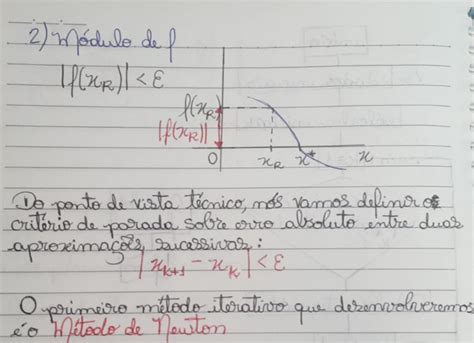 2) Módulo de f
|f(x_R)| < ε
f(x_R)
|f(x_R)|
0 x_R x* x
Do ponto de vista técnico, nós vamos definir os
critério de parada sobre erro absoluto entre duas
aproximações sucessivas:
|x_{k+1} - x_k| < ε
O primeiro método iterativo que desenvolveremos
é o Método de Newton